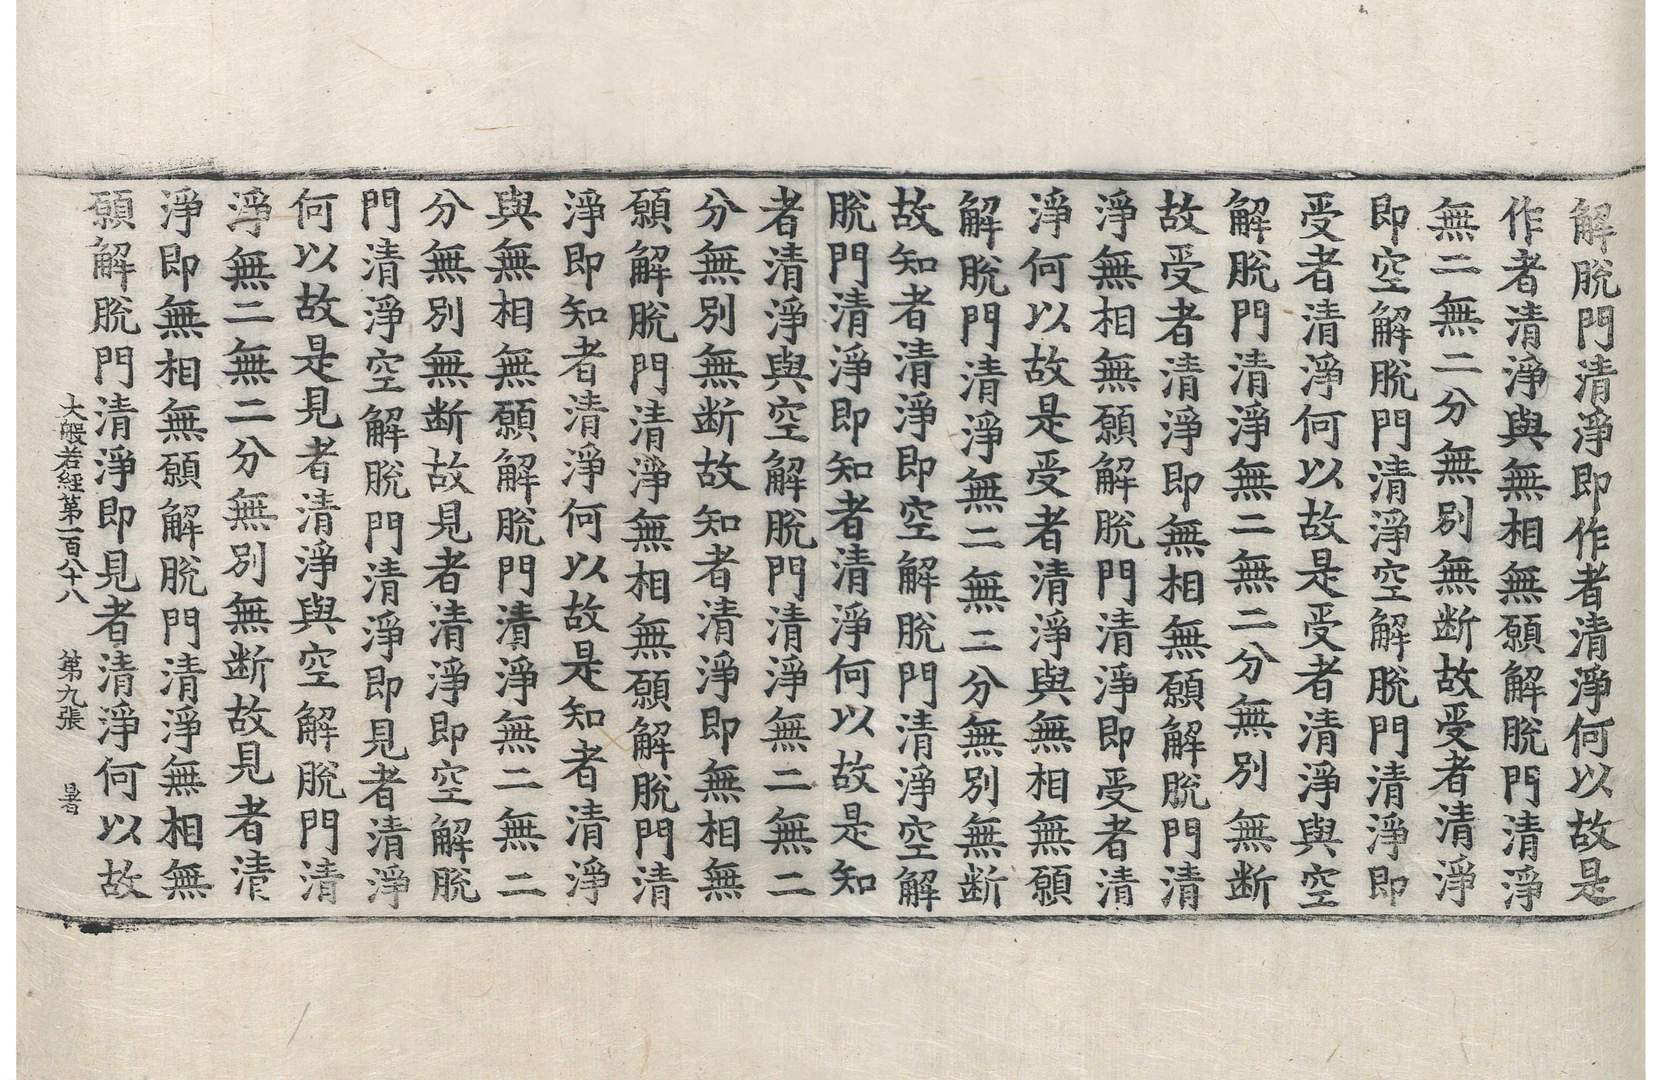 解脫門清淨即作者清淨何以故是
作者清淨與無相無願解脫門清淨
無二無二分無別無断故受者清淨
即空解脫門清淨空解脫門清淨即
受者清淨何以故是受者清淨與空
解脫門清淨無二無二分無別無断
故受者清淨即無相無願解脫門清
淨無相無願解脫門清淨即受者清
淨何以故是受者清淨與無相無願
解脫門清淨無二無二分無別無断
故知者清淨即空解脫門清淨空解
脫門清淨即知者清淨何以故是知
者清淨與空解脫門清淨無二無二
分無別無断故知者清淨即無相無
願解脫門清淨無相無願解脫門清
淨即知者清淨何以故是知者清淨
與無相無願解脫門清淨無二無二
分無別無断故見者清淨即空解脫
門清淨空解脫門清淨即見者清淨
何以故是見者清淨與空解脫門清
淨無二無二分無別無断故見者清
淨即無相無願解脫門清淨無相無
願解脫門清淨即見者清淨何以故
大般若經第一百八十八 第九張 暑